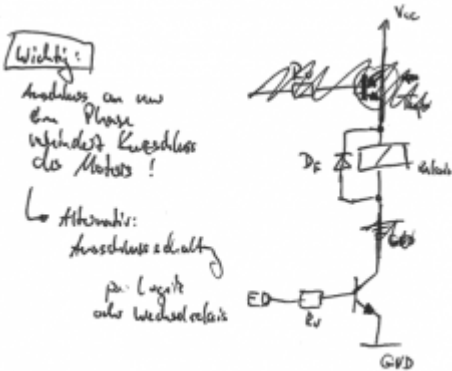 Wichtig:
Anschluss an nur
Phase
verhindert Kurzschluss
des Motors !
Alternativ:
Ausschlussschaltung
per Logik
oder Wechselrelais
Vcc
DF
Relais
GND
RV
GND